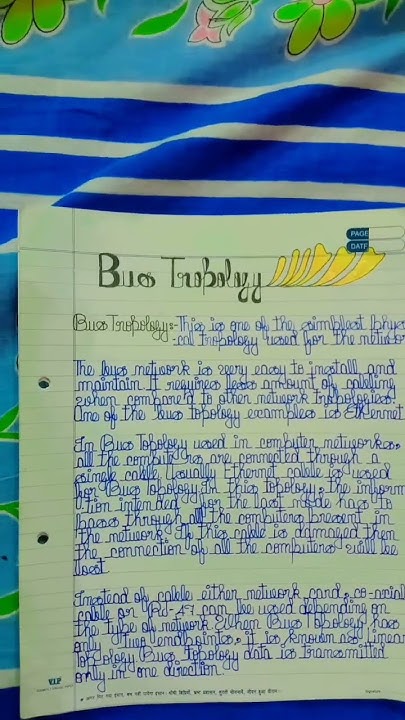 PAGE
DATE
Bus Tropology
Bus Tropology:- This is one of the simplest physi
-cal tropology used for the network
The bus network is very easy to install and
maintain It requires less amount of cableing
when compare'd to other network tropologies.
One of the bus topology examples is Ethernet
In Bus Topology used in computer networks,
all the are connected through a
single cable. Usually Ethernet cable is used
for Bus Topology. In this topology, the inform
-tion intended for the last node has to
pass through all the computers present in
the network. If this cable is damaged then
the connection of all the computers will be
lost
Instead of cable either network card, co-axial
cable or RJ-47 can be used depending on
the type of network When Bus Topology has
only Two endpoints, it is known as linear
topology Bus Topology data is transmitted
only in one direction.
VIP